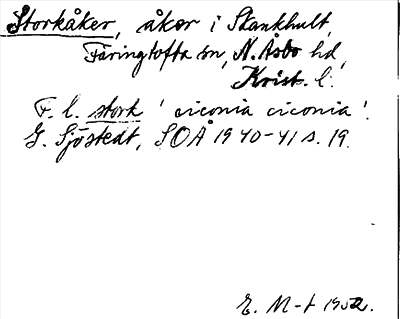 Storkåker, åker i Skankhult,
Färingtofta sn, N. Åsbo hd,
Krist. l.
F. l. stork 'ciconia ciconia'.
G. Sjöstedt, SOÅ 1940-41 s. 19.
E. M-t 1952.